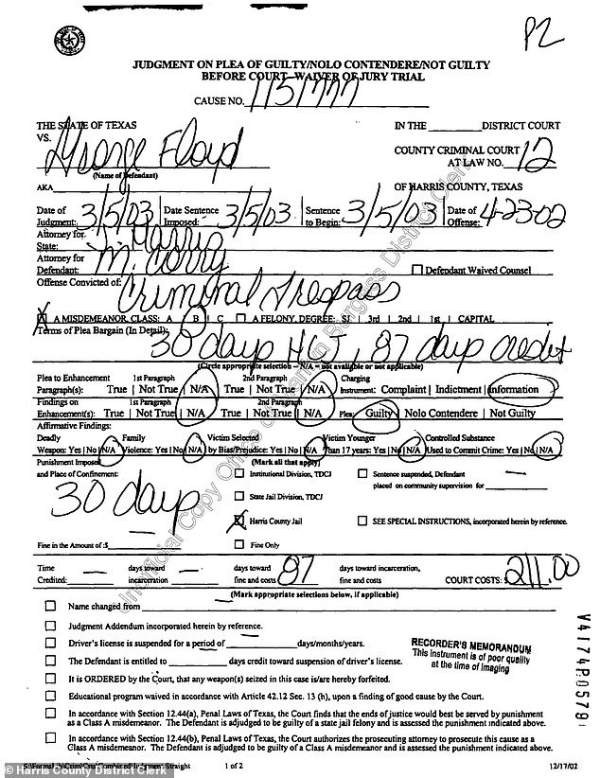 P2
JUDGMENT ON PLEA OF GUILTY/NOLO CONTENDERE/NOT GUILTY
BEFORE COURT—WAIVER OF JURY TRIAL
CAUSE NO. 1151777
THE STATE OF TEXAS IN THE ______ DISTRICT COURT
VS. George Floyd COUNTY CRIMINAL COURT
(Name of Defendant) AT LAW NO. 12
AKA OF HARRIS COUNTY, TEXAS
Date of Judgment: 3/5/03 Date Sentence Imposed: 3/5/03 Sentence to Begin: 3/5/03 Date of Offense: 4-23-02
Attorney for State: Harris
Attorney for Defendant: M. Corry ☐ Defendant Waived Counsel
Offense Convicted of: Criminal Trespass
A MISDEMEANOR, CLASS: A | B | C ☐ A FELONY, DEGREE: SJ | 3rd | 2nd | 1st | CAPITAL
Terms of Plea Bargain (In Detail): 30 days HCJ, 87 days credit
(Circle appropriate selection – N/A = not available or not applicable)
Plea to Enhancement Paragraph(s): 1st Paragraph True | Not True | N/A 2nd Paragraph True | Not True | N/A Charging Instrument: Complaint | Indictment | Information
Findings on Enhancement(s): 1st Paragraph True | Not True | N/A 2nd Paragraph True | Not True | N/A Plea: Guilty | Nolo Contendere | Not Guilty
Affirmative Findings:
Deadly Weapon: Yes | No | N/A Family Violence: Yes | No | N/A Victim Selected by Bias/Prejudice: Yes | No | N/A Victim Younger Than 17 years: Yes | No | N/A Controlled Substance Used to Commit Crime: Yes | No | N/A
Punishment Imposed and Place of Confinement: (Mark all that apply)
30 days
☐ Institutional Division, TDCJ ☐ Sentence suspended, Defendant placed on community supervision for
☐ State Jail Division, TDCJ
☒ Harris County Jail ☐ SEE SPECIAL INSTRUCTIONS, incorporated herein by reference.
Fine in the Amount of :$ — ☐ Fine Only
Time Credited: — days toward incarceration — days toward fine and costs 87 days toward incarceration, fine and costs COURT COSTS: $ 211.00
(Mark appropriate selections below, if applicable)
☐ Name changed from
☐ Judgment Addendum incorporated herein by reference.
☐ Driver's license is suspended for a period of ______ days/months/years.
☐ The Defendant is entitled to ______ days credit toward suspension of driver's license.
☐ It is ORDERED by the Court, that any weapon(s) seized in this case is/are hereby forfeited.
☐ Educational program waived in accordance with Article 42.12 Sec. 13 (h), upon a finding of good cause by the Court.
☐ In accordance with Section 12.44(a), Penal Laws of Texas, the Court finds that the ends of justice would best be served by punishment
as a Class A misdemeanor. The Defendant is adjudged to be guilty of a state jail felony and is assessed the punishment indicated above.
☐ In accordance with Section 12.44(b), Penal Laws of Texas, the Court authorizes the prosecuting attorney to prosecute this cause as a
Class A misdemeanor. The Defendant is adjudged to be guilty of a Class A misdemeanor and is assessed the punishment indicated above.
RECORDER'S MEMORANDUM
This instrument is of poor quality
at the time of imaging
V4174P0579
1 of 2 12/17/02
Unofficial Copy Office of Burgess District Clerk
© Harris County District Clerk